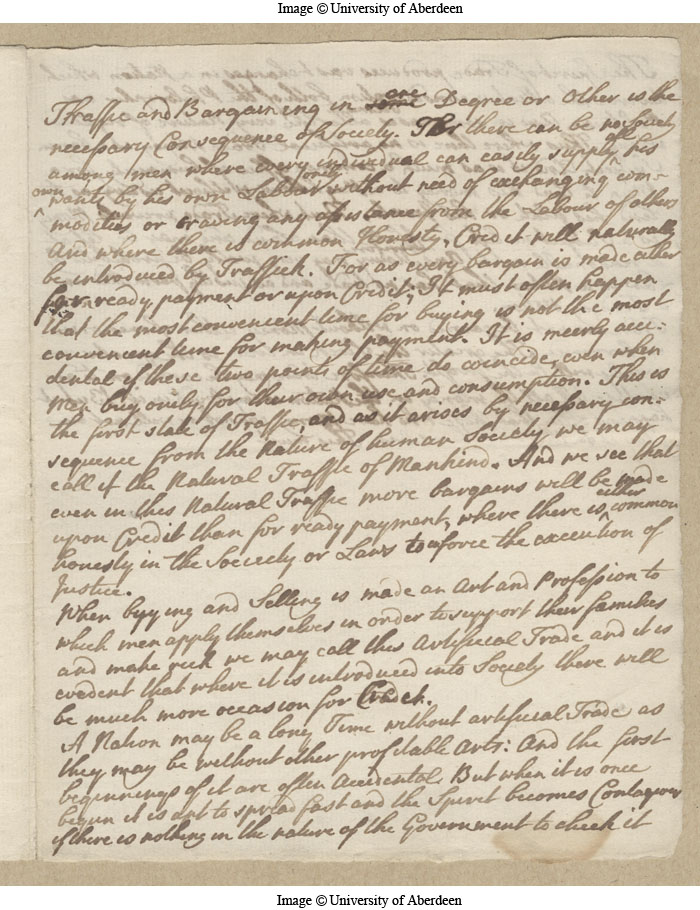 Image © University of Aberdeen
Traffic and Bargaining in some one Degree or Other is the
necessary Consequence of Society. For there can be no Society
among men where every individual can easily supply all his
own wants by his own Labour only without need of exchanging com-
modities or craving any assistance from the Labour of others
And where there is common Honesty, Credit will naturally
be introduced by Traffick. For as every bargain is made either
for ready payment or upon Credit; It must often happen
that the most convenient time for buying is not the most
convenient time for making payment. It is meerly acci-
dental if these two points of time do coincide, even when
Men buy onily for their own use and consumption. This is
the first state of Traffic, and as it arises by necessary con-
sequence from the Nature of human Society we may
call it the Natural Traffic of Mankind. And we see that
even in this Natural Traffic more bargains will be made
upon Credit than for ready payment, where there is either common
honesty in the Society or Laws to inforce the execution of
Justice.
When buying and Selling is made an Art and Profession to
which men apply themselves in order to support their families
and make rich we may call this Artificial Trade and it is
evident that where it is introduced into Society there will
be much more occasion for Credit.
A Nation may be a long Time without artificial Trade as
they may be without other profitable Arts: And the first
beginnings of it are often Accidental. But when it is once
begun it is apt to spread fast and the Spirit becomes Contageous
if there is nothing in the nature of the Government to check it
Image © University of Aberdeen